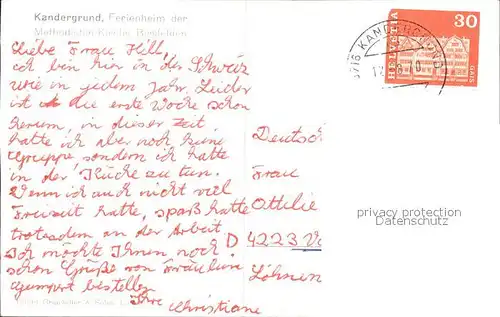 Kandergrund, Ferienheim der
Methodisten-Kirche
Liebe Frau Hill,
ich bin hier in der Schweiz
wie in jedem Jahr. Leider
ist die erste Woche schon
herum, in dieser Zeit
hatte ich aber noch keine
Gruppe, sondern ich hatte
in der Küche zu tun.
Wenn ich auch nicht viel
Freizeit hatte, spaß hatte
trotzdem an der Arbeit
Ich möchte Ihnen noch
schon Grüße von Fräulein
bestellen
Ihre Christiane
HELVETIA
30
GAIS
3716 KANDERGRUND
Deutsch
Frau
Ottilie
D 4223 Vo
Löhnen
privacy protection
watermark